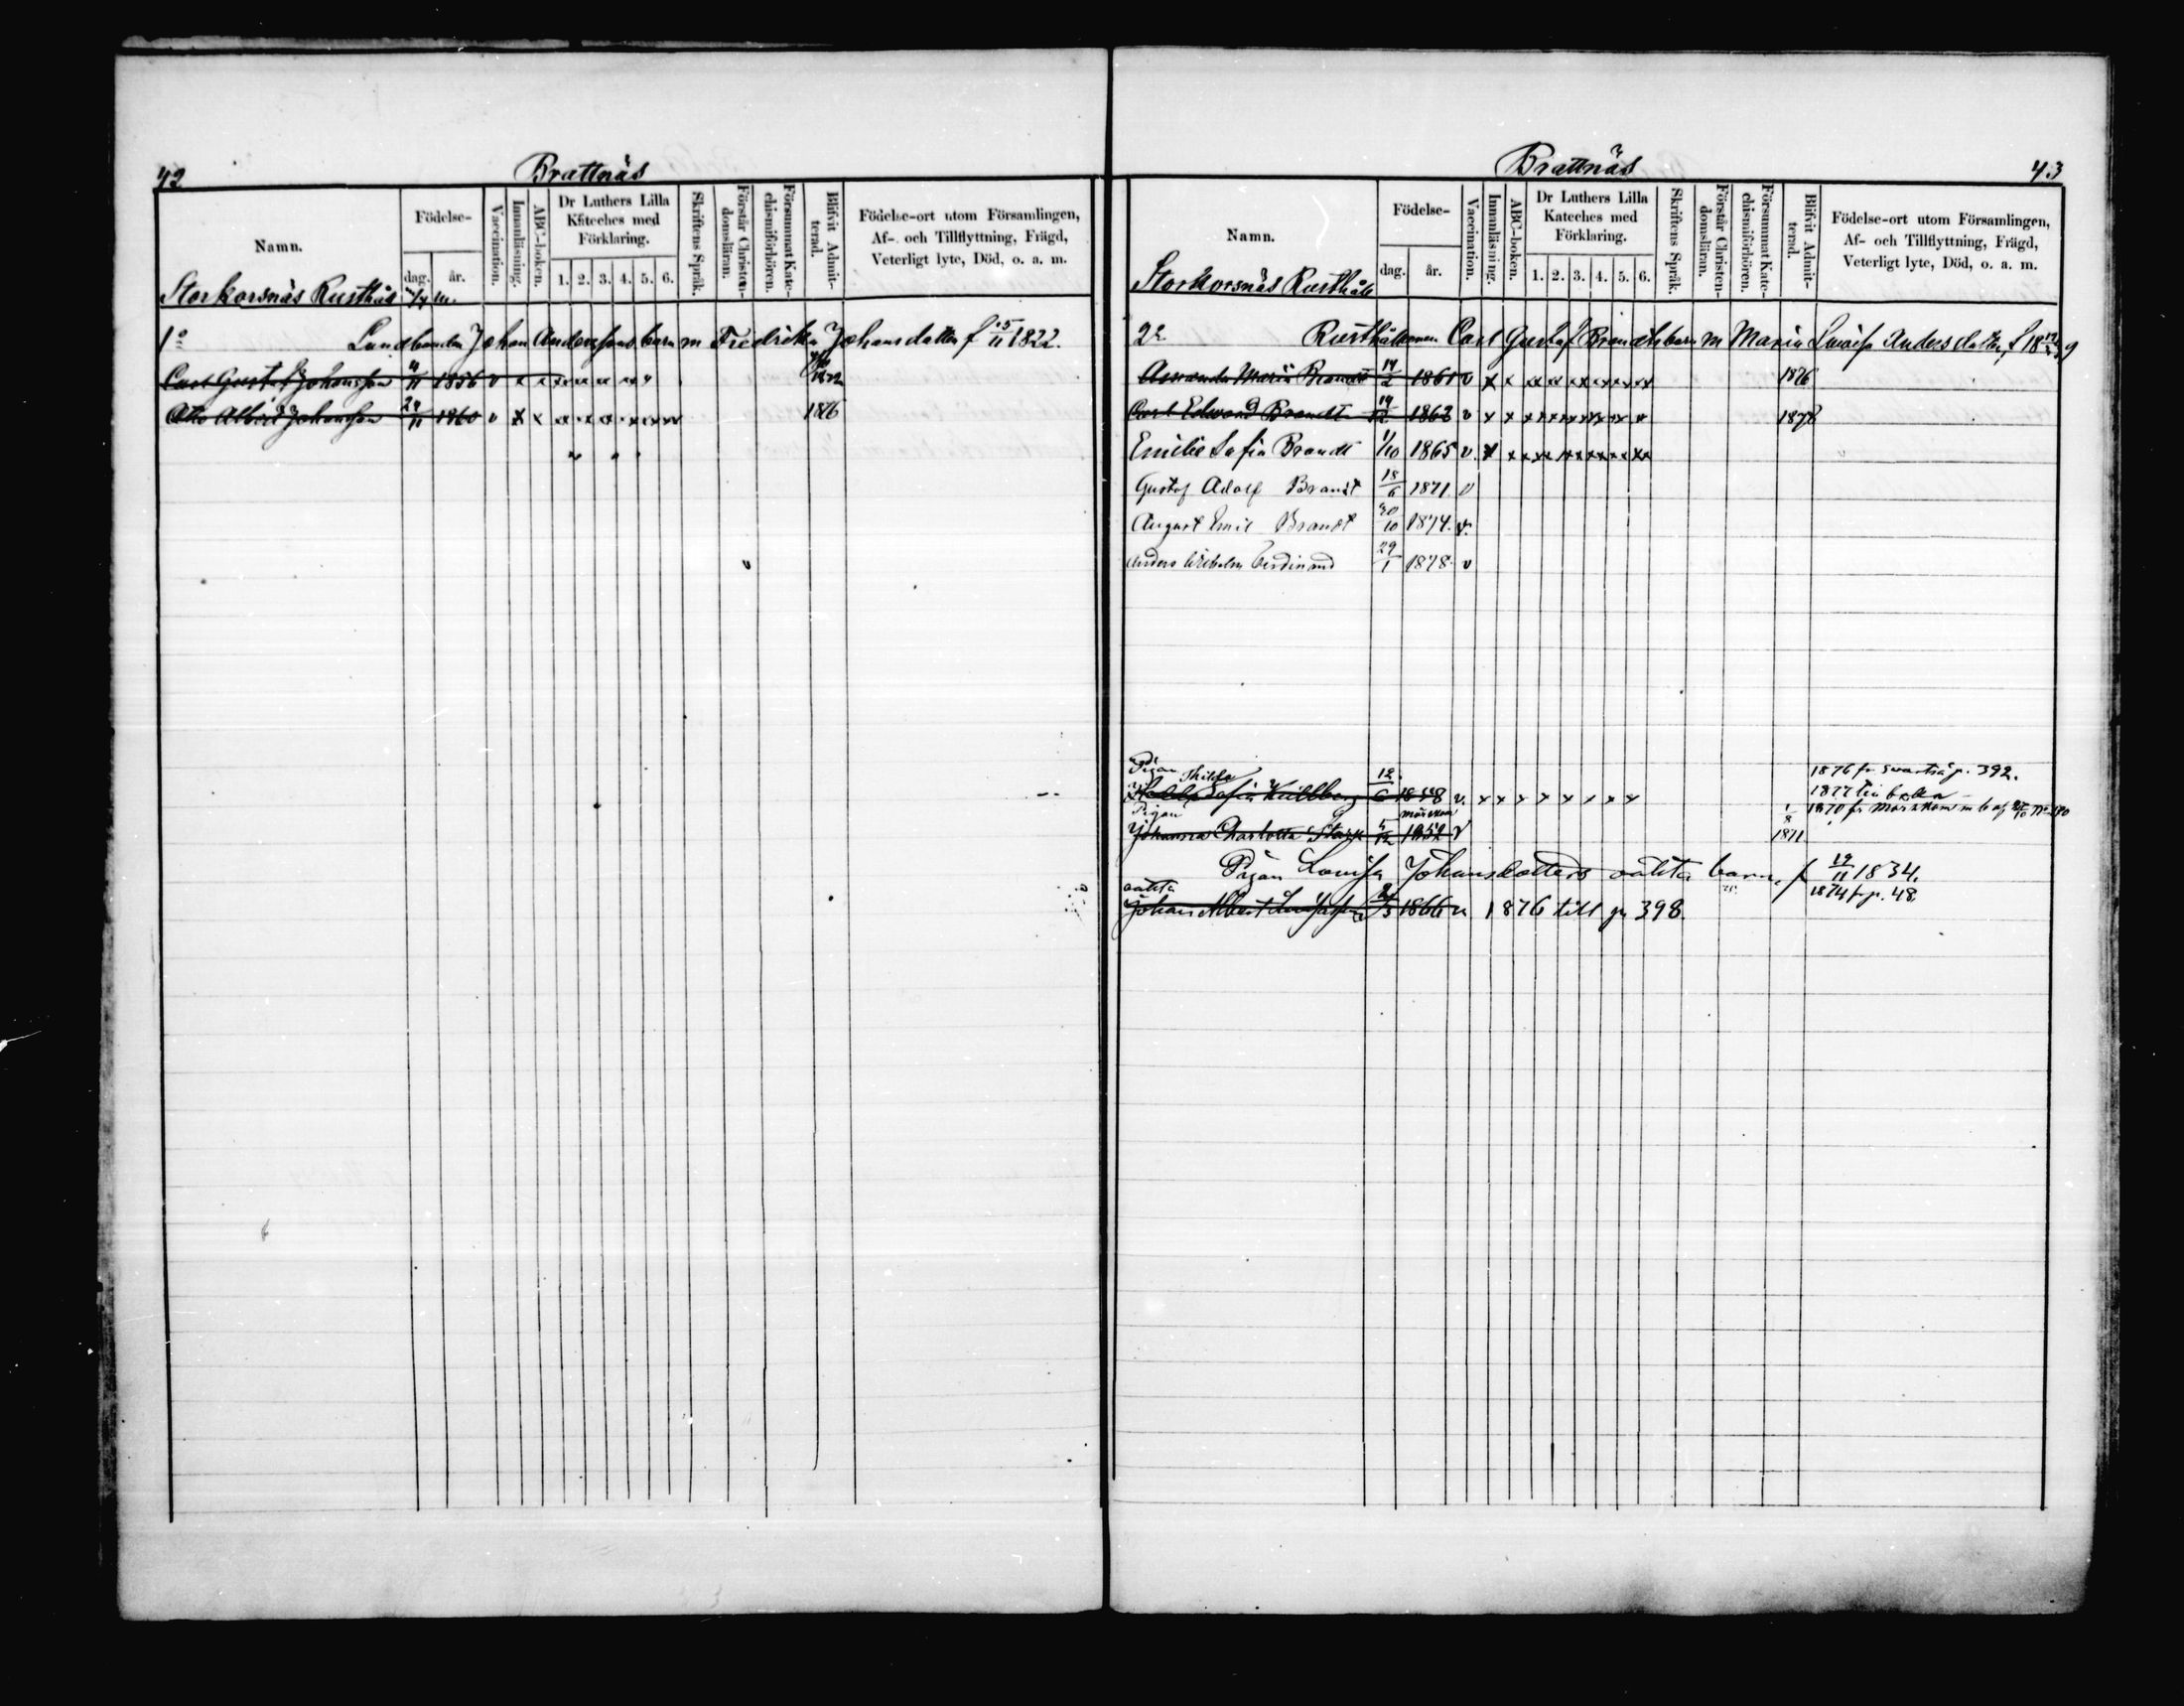 42
Brattnäs
Namn.
Födelse-
dag.
år.
Vaccination.
Innanläsning.
ABC-boken.
Dr Luthers Lilla
Kateches med
Förklaring.
1. 2. 3. 4. 5. 6.
Skriftens Språk.
Förstår Christen-
domsläran.
Försummat Kate-
chismiförhören.
Blifvit Admit-
terad.
Födelse-ort utom Församlingen,
Af- och Tillflyttning, Frägd,
Veterligt lyte, Död, o. a. m.
Storkorsnäs Rusthåll
1º Landbonden Johan Anderssons barn m Fredrika Johansdotter f 15/11 1822.
Carl Gustaf Johansson 1856 v x x x x x x x 1872
Otto Albert Johansson 24/11 1860 v x x x x x x x x x 1876
Brattnäs
43
Namn.
Födelse-
dag.
år.
Vaccination.
Innanläsning.
ABC-boken.
Dr Luthers Lilla
Kateches med
Förklaring.
1. 2. 3. 4. 5. 6.
Skriftens Språk.
Förstår Christen-
domsläran.
Försummat Kate-
chismiförhören.
Blifvit Admit-
terad.
Födelse-ort utom Församlingen,
Af- och Tillflyttning, Frägd,
Veterligt lyte, Död, o. a. m.
Storkorsnäs Rusthåll
Rusthållaren Carl Gustaf Brandts barn m Maria Lovisa Andersdotter, f
Amanda Maria Brandt 14/2 1861 v x x x x x x x x x x 1876
Carl Edward Brandt 1863 v x x x x x x x x x x 1878
Emilie Sofia Brandt 1/10 1865 v x x x x x x x x x x
Gustaf Adolf Brandt 18/6 1871 v
August Emil Brandt 30/10 1874. v.
Anders Wilhelm Ferdinand 29/1 1878 v
Pigan Hilda
Sofia Kullberg 12/6 1858 v. x x x x x x x x 1876 fr p. 392.
1877 till
Pigan
Johanna Charlotta 5/12 1852 v 1/8 1871 1870 fr
Pigan Lovisa Johansdotters oäkta barn, f 19/11 1834.
1874 fr p. 48.
oäkta
Johan Albert 1866 v 1876 till p 398.